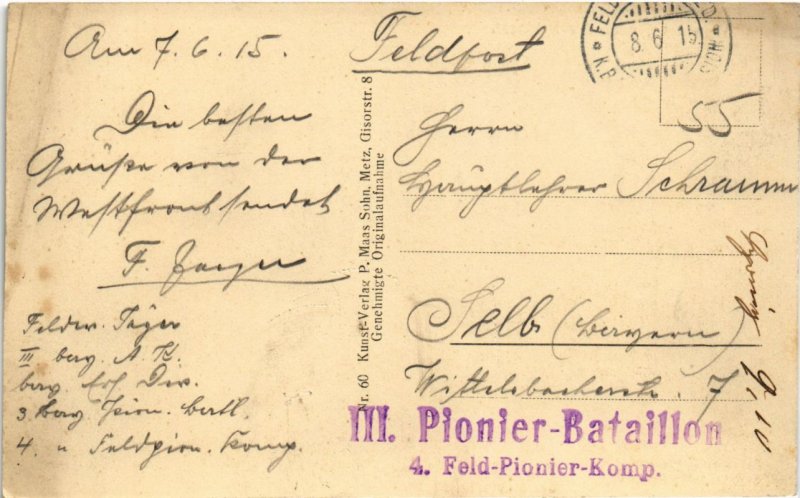 Am 7. 6. 15.
Die besten
Grüße von der
Westfront sendet
F. Jaeger
Feldw. Jäger
III bay. A. K.
bay. Ers. Div.
3. bay. Pion. Batl.
4. " Feldpion. Komp.
Nr. 60 Kunst-Verlag P. Maas Sohn, Metz, Gisorstr. 8
Genehmigte Originalaufnahme
Feldpost
8 6 15
55
Herrn
Hauptlehrer Schramm
Selb (Bayern)
Wittelsbacherstr. 7
III. Pionier-Bataillon
4. Feld-Pionier-Komp.